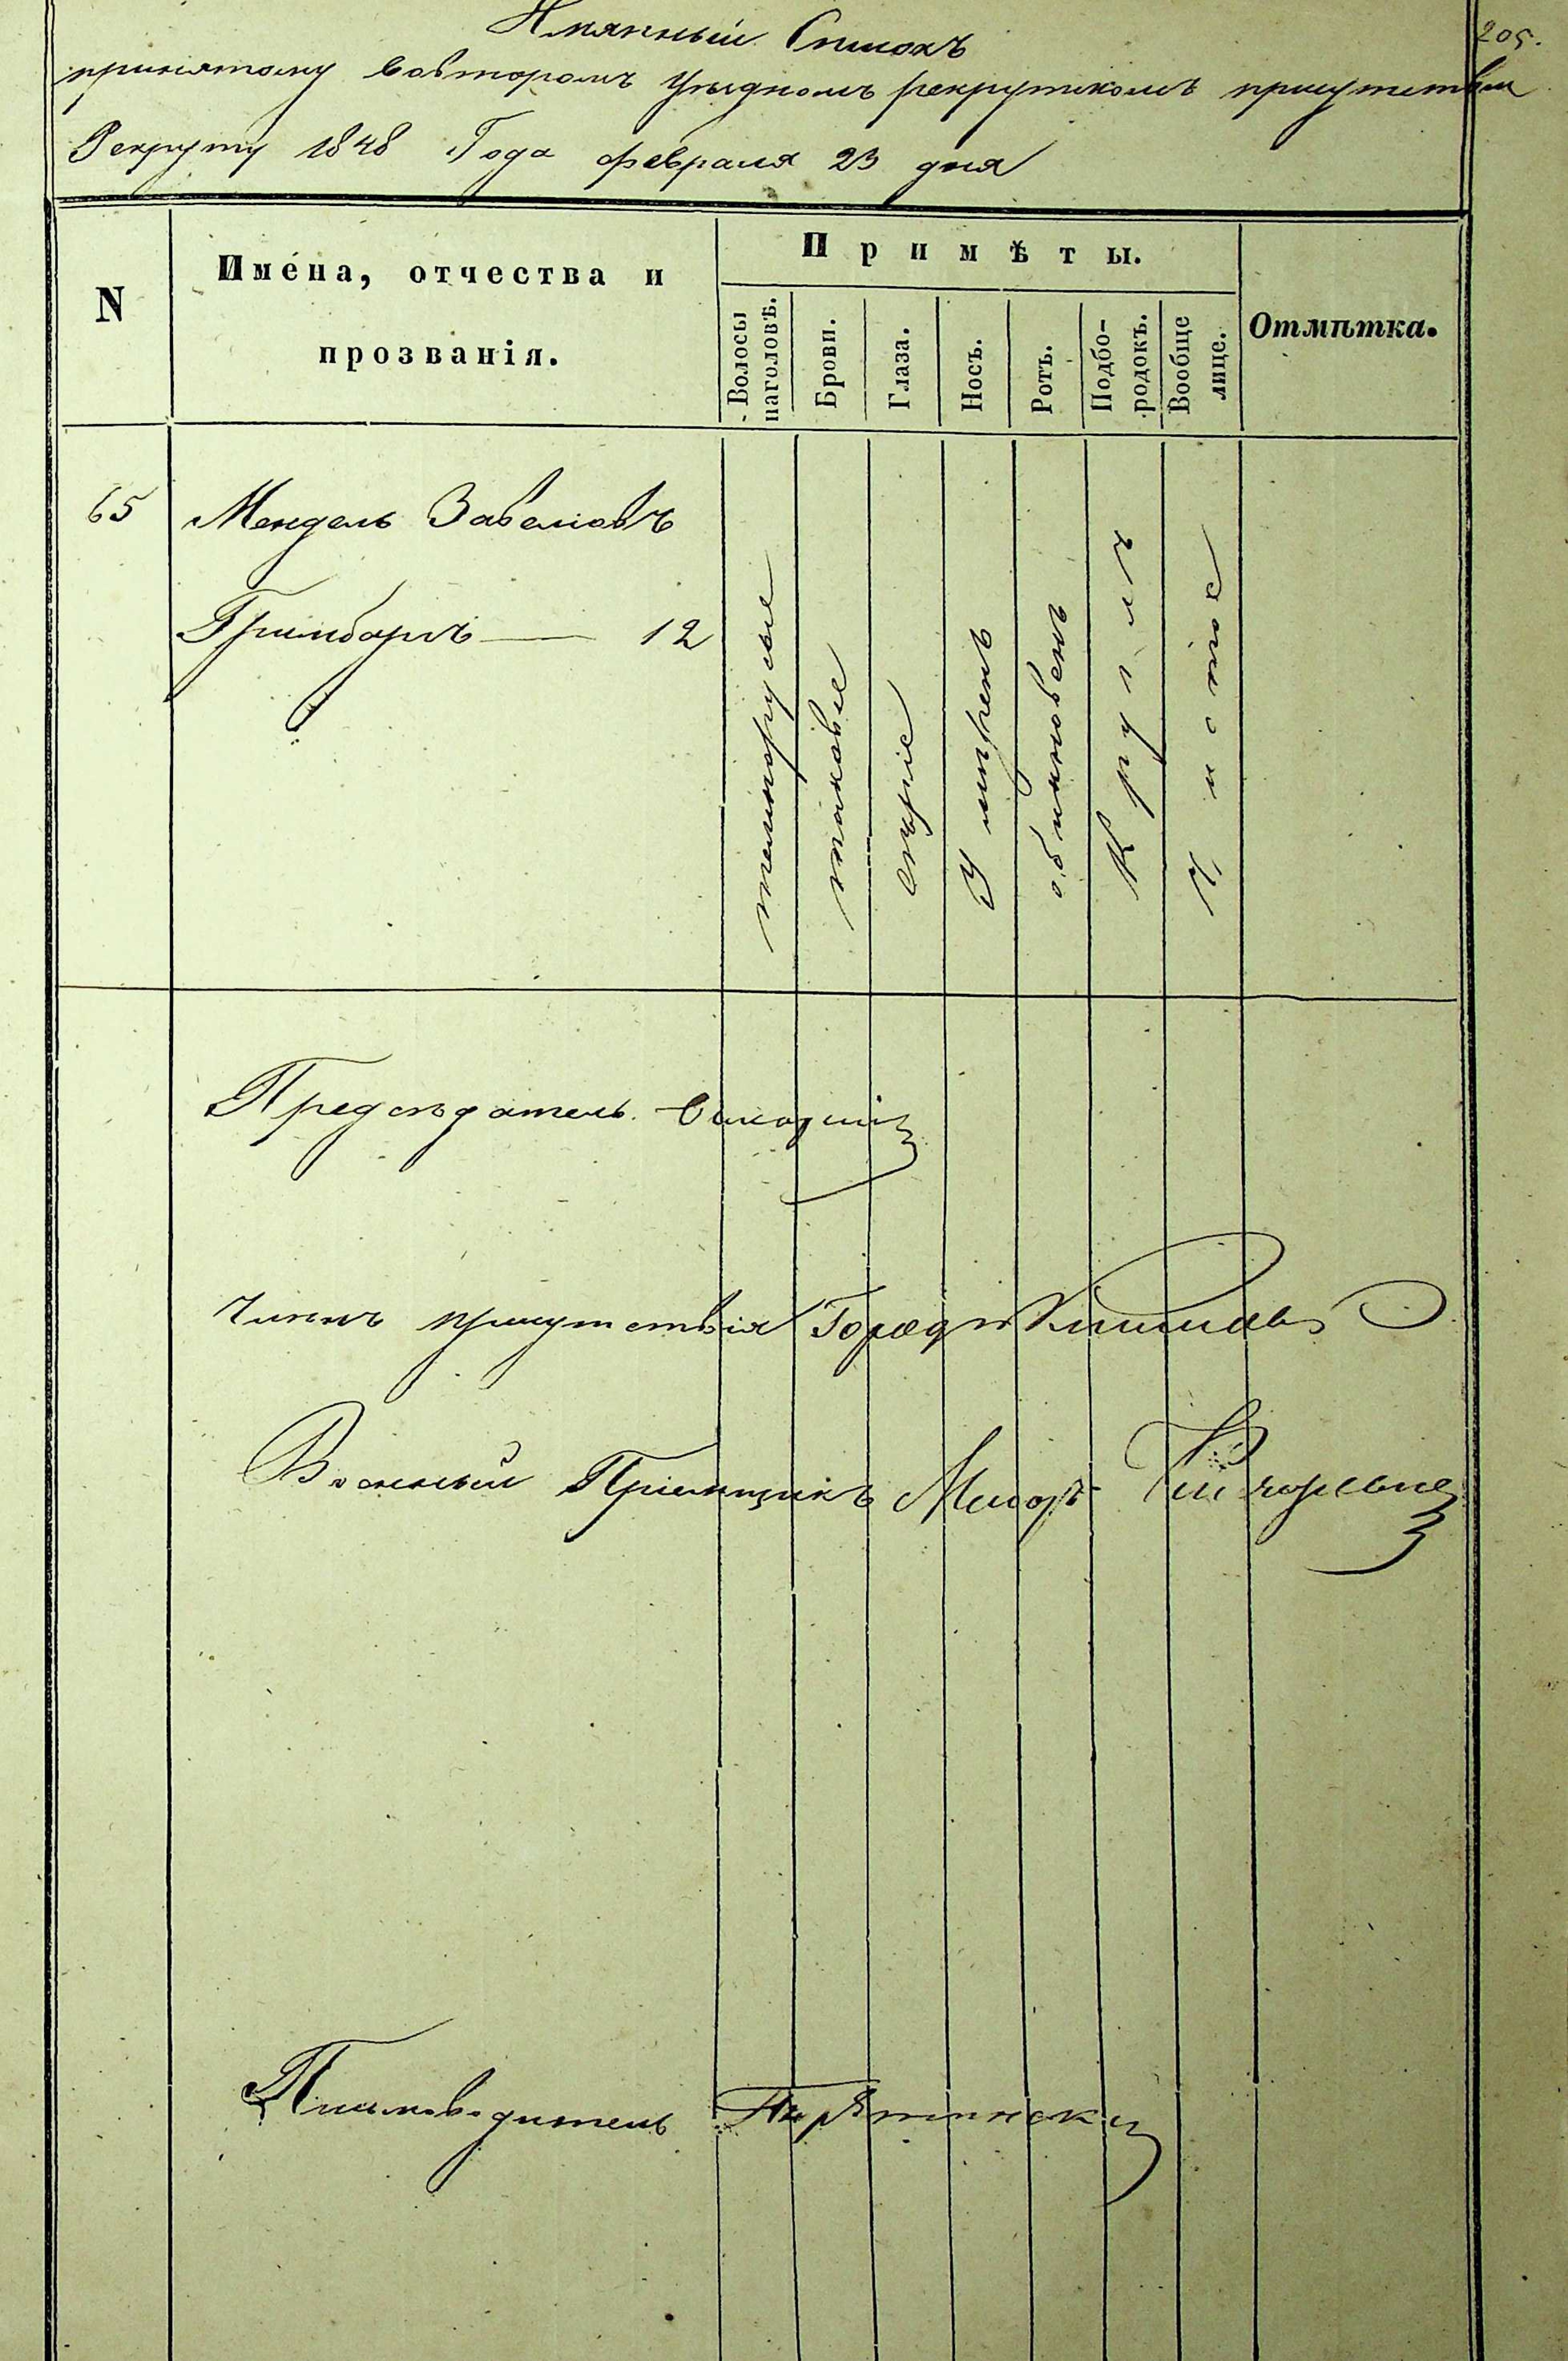 Имянный Списокъ
205.
принятому вовторомъ Уѣздномъ рекрутскомъ присутствіи
Рекруту 1848 Года февраля 23 дня
N
Имена, отчества и
прозванія.
Примѣты.
Волосы
наголовѣ.
Брови.
Глаза.
Носъ.
Ротъ.
Подбо-
родокъ.
Вообще
лице.
Отмѣтка.
65
Мендель Завелiовъ
12
темнорусые
таковые
сѣріе
Умѣренъ
обикновенъ
Круглъ
Чистое
Предсѣдатель
Членъ присутствія
Военный Пріемщикъ Маіоръ
Письмоводитель